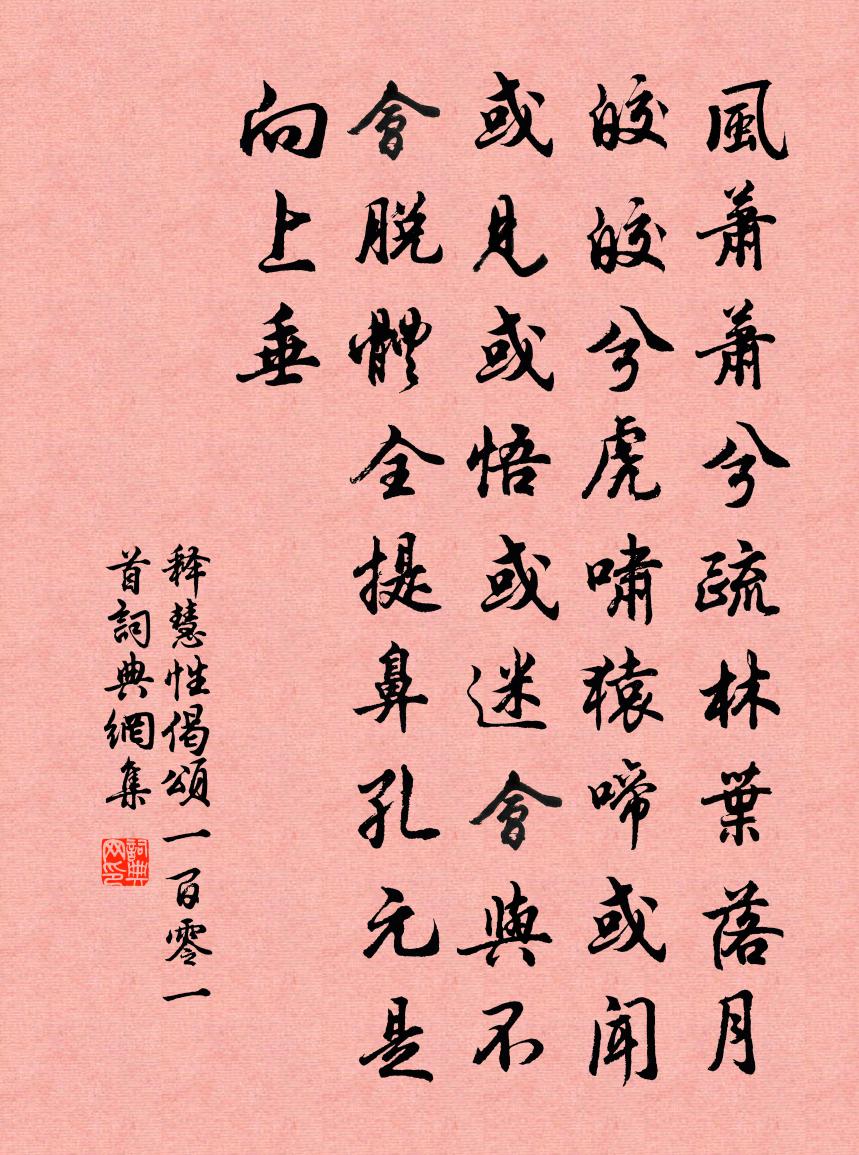 風蕭蕭兮疏林葉落月
皎皎兮虎嘯猿啼或聞
或見或悟或迷會與不
會脫體全提鼻孔元是
向上垂
释慧性偈頌一百零一
首詞典網集
詞典
网印